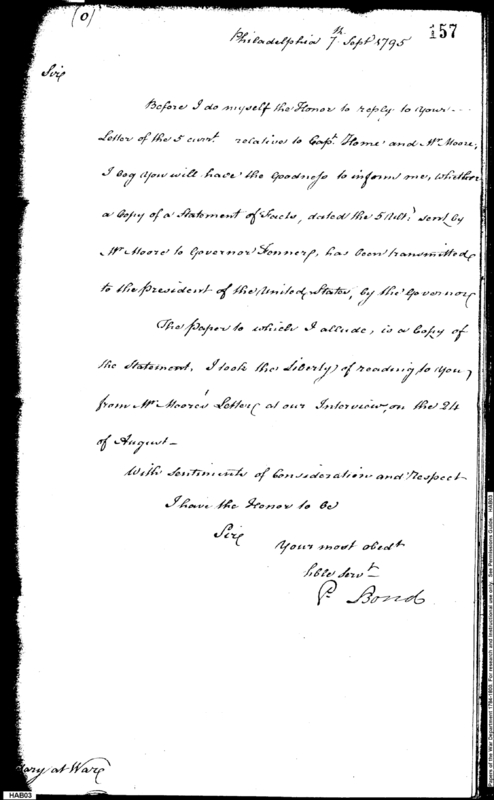 (O)
157
Philadelphia 7th Sept 1795
Sir
Before I do myself the Honor to reply to your
Letter of the 5 currt. relative to Capt. Home and Mr. Moore,
I beg you will have the Goodness to inform me, whether
a Copy of a Statement of Facts, dated the 5 Ult: sent by
Mr Moore to Governor Fenner, has been transmitted
to the President of the United States, by the Governor
The Paper to which I allude, is a Copy of
the Statement, I took the Liberty of reading to you,
from Mr. Moore's Letter at our Interview, on the 24
of August—
With Sentiments of Consideration and Respect
I have the Honor to be
Sir
Your most obedt
hble servt
P. Bond
tary at War
HAB03
Papers of the War Department 1784-1800. For research and instructional use only. See Permissions Guide. HAB03